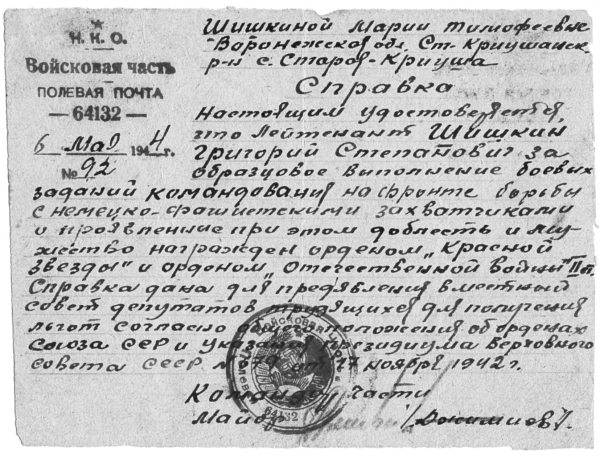 Н. К. О.
Войсковая часть
ПОЛЕВАЯ ПОЧТА
— 64132 —
6 Мая 1944 г.
№ 92
Шишкиной Марии Тимофеевне
Воронежская обл. Ст-Криушанск
р-н с. Старо-Криуша
Справка
Настоящим удостоверяется,
что Лейтенант Шишкин
Григорий Степанович за
образцовое выполнение боевых
заданий командования на фронте борьбы
с немецко-фашистскими захватчиками
и проявление при этом доблесть и му-
жество награжден орденом „Красной
звезды" и орденом „Отечественной Войны" II ст.
Справка дана для предявления в местный
совет депутатов трудящихся для получения
льгот согласно положения об орденах
Союза ССР и указания президиума Верховного
совета СССР от 17 ноября 1942 г.
Командир части
Майор
64132